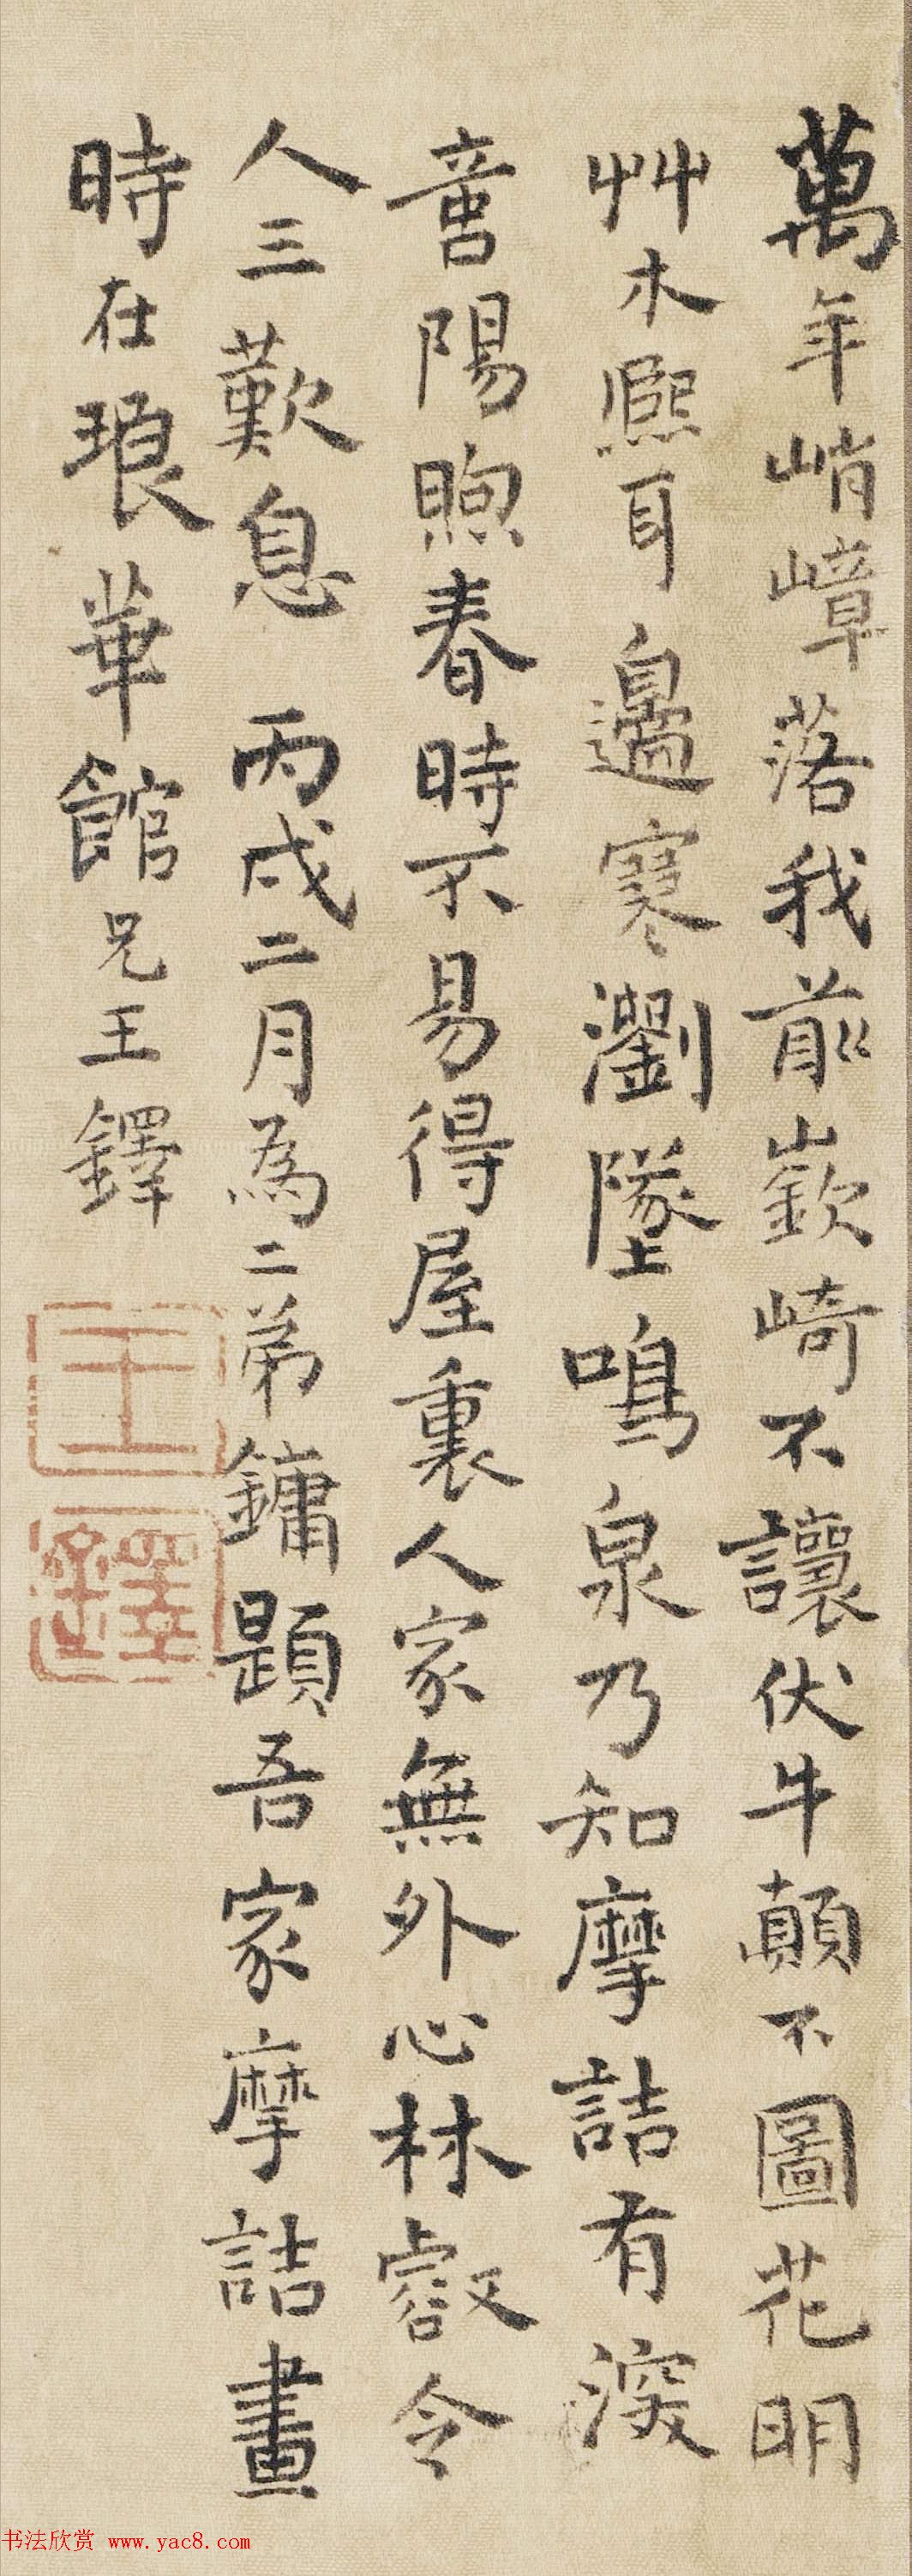 萬年峭嶂落我前嶔崎不讓伏牛顛不圖花明
艸木熙耳邊寒瀏墜鳴泉乃知摩詰有深
意陽煦春時不易得屋裏人家無外心林壑令
人三歎息 丙戌二月為二弟鏞題吾家摩詰畫
時在琅華館兄王鐸
王鐸
书法欣赏 www.yac8.com